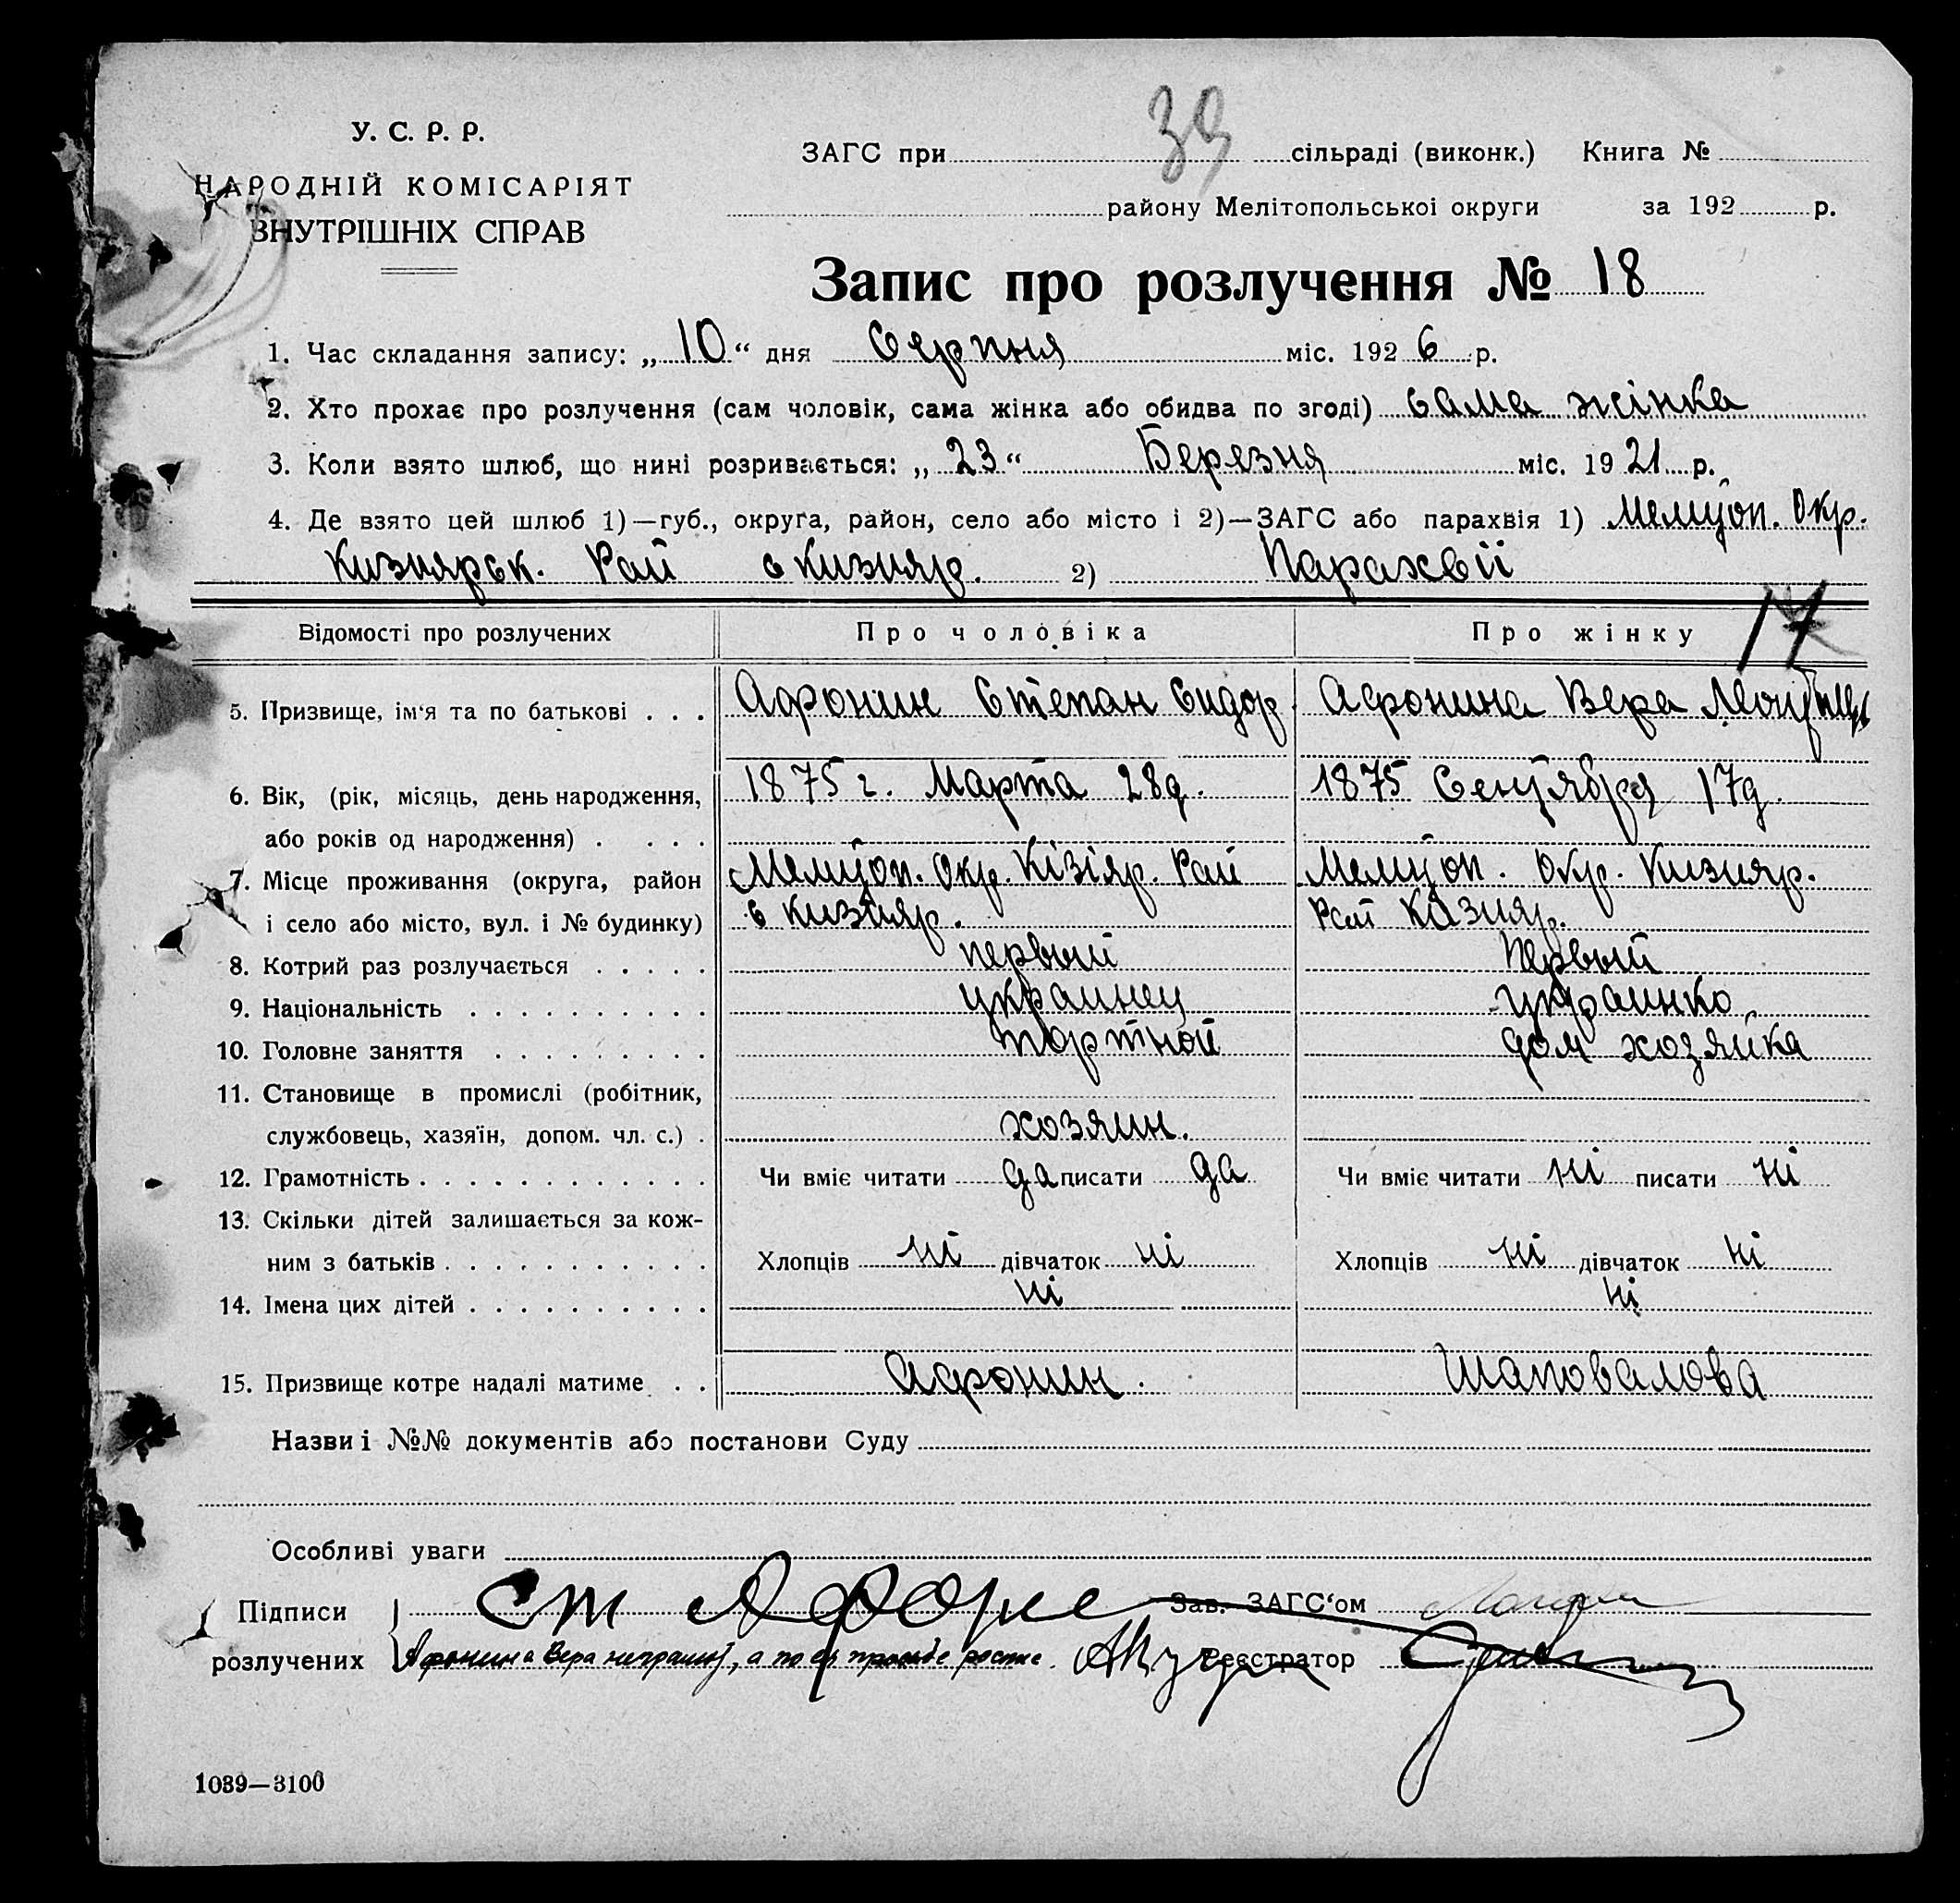 У. С. Р. Р.
НАРОДНІЙ КОМІСАРІЯТ
ВНУТРІШНІХ СПРАВ
39
ЗАГС при сільраді (виконк.) Книга №
району Мелітопольскої округи за 192 р.
Запис про розлучення № 18
1. Час складання запису: „10“ дня Серпня міс. 1926 р.
2. Хто прохає про розлучення (сам чоловік, сама жінка або обидва по згоді) сама жінка
3. Коли взято шлюб, що нині розривається: „23“ Березня міс. 1921 р.
4. Де взято цей шлюб 1)—губ., округа, район, село або місто і 2)—ЗАГС або парахвія 1) Мелитоп. Окр.
Кизиярск. Рай с Кизияр. 2) Парахвіі
17
Відомості про розлучених Про чоловіка Про жінку
5. Призвище, ім'я та по батькові . . . Афонин Степан Сидор. Афонина Вера
6. Вік, (рік, місяць, день народження, 1875 г. Марта 28д. 1875 Сентября 17д.
або років од народження) . . . .
7. Місце проживання (округа, район Мелитоп. Окр. Кізіяр. Рай Мелитоп. Окр. Кизияр.
і село або місто, вул. і № будинку) с Кизияр. Рай Кизияр.
8. Котрий раз розлучається . . . . . первый первый
9. Національність . . . . . . . . . . украинец украинка
10. Головне заняття . . . . . . . . . портной дом хозяйка
11. Становище в промислі (робітник,
службовець, хазяїн, допом. чл. с.) . хозяин.
12. Грамотність . . . . . . . . . . . . Чи вміє читати да писати да Чи вміє читати ні писати ні
13. Скільки дітей залишається за кож-
ним з батьків . . . . . . . . . . . Хлопців ні дівчаток ні Хлопців ні дівчаток ні
14. Імена цих дітей . . . . . . . . . . ні ні
15. Призвище котре надалі матиме . . Афонин. Шаповалова
Назви і №№ документів або постанови Суду
Особливі уваги
Підписи Ст Афоне Зав. ЗАГС'ом
розлучених Афонина Вера неграмот, а по ея просьбе роспис. Реєстратор
1039—3100